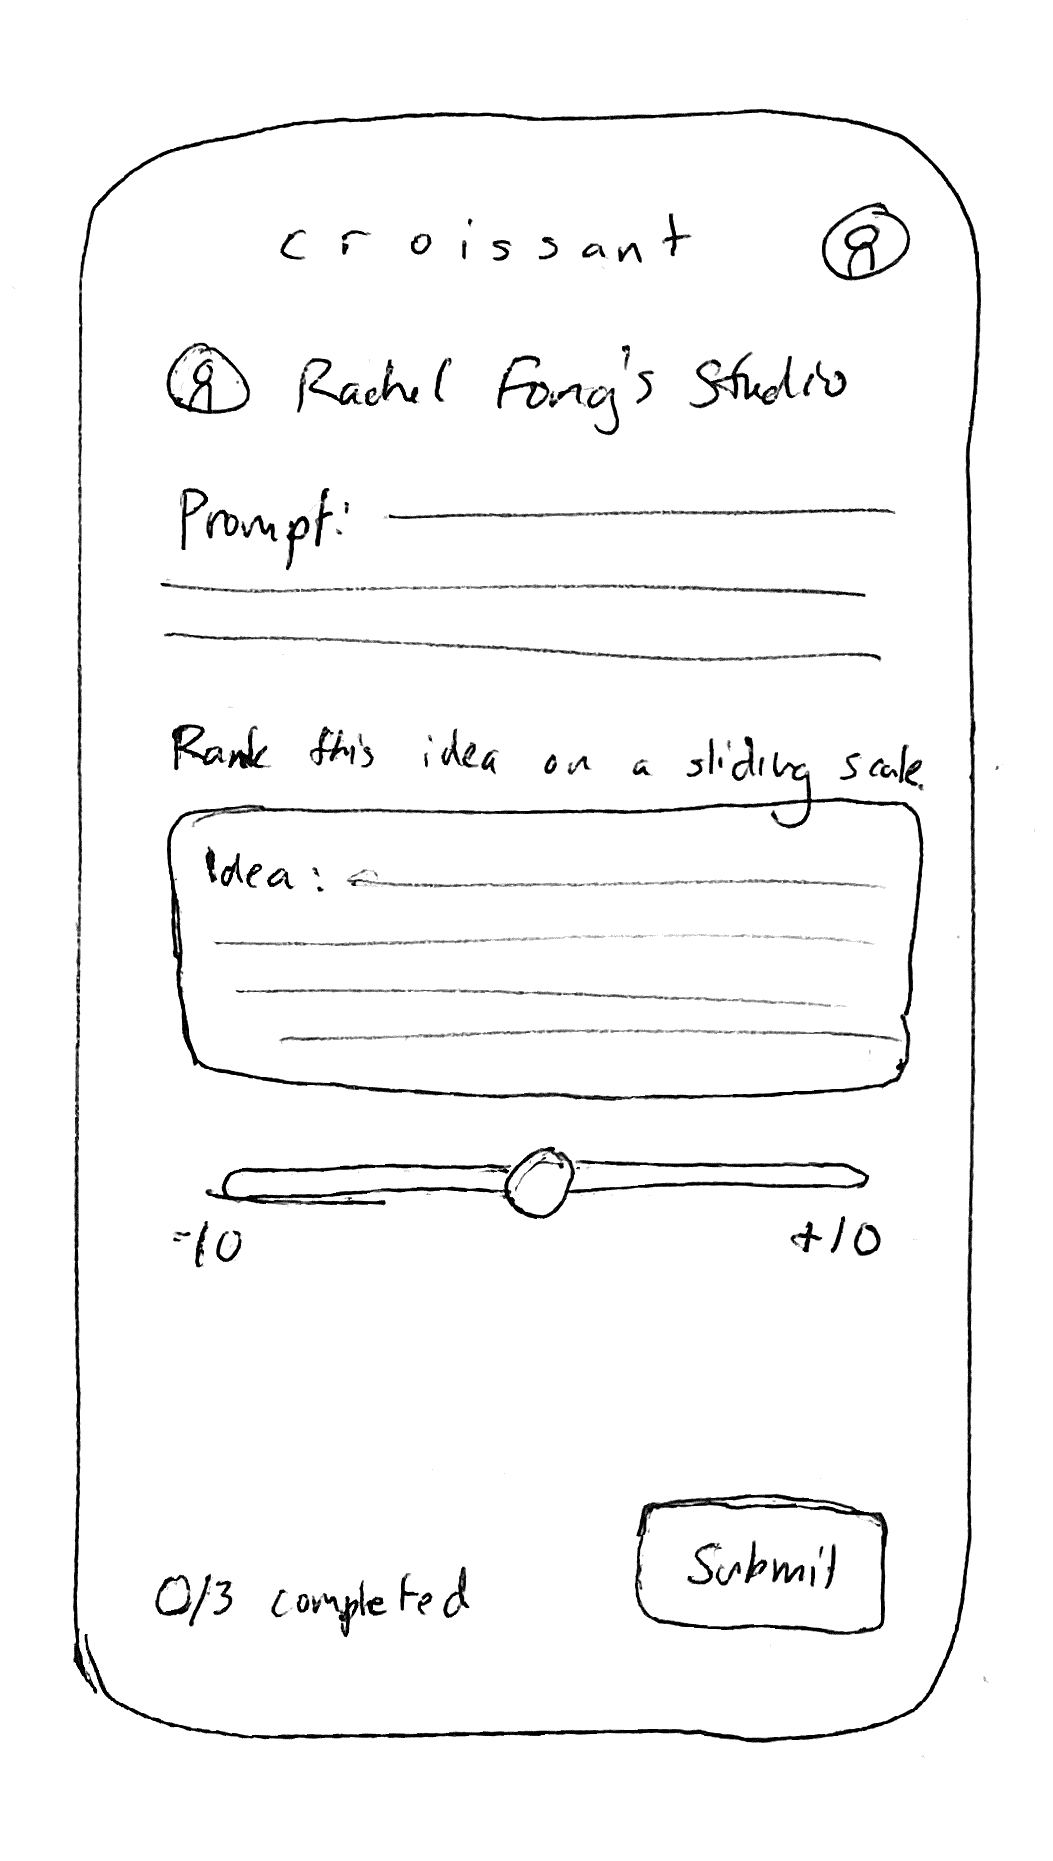 croissant
Rachel Fong's Studio
Prompt:
Rank this idea on a sliding scale.
Idea:
-10 +10
0/3 completed
Submit